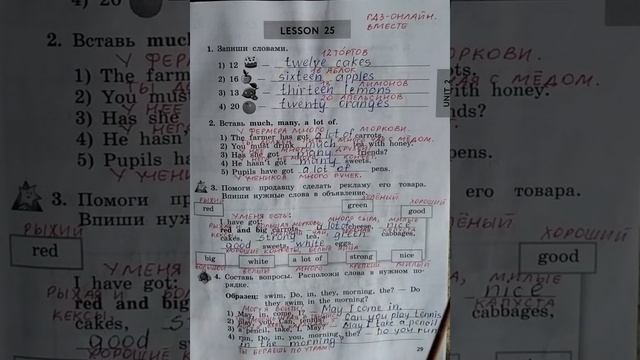 LESSON 25
ГДЗ-ОНЛАЙН.
ВМЕСТЕ
1. Запиши словами.
12 ТОРТОВ
1) 12 – twelve cakes
16 ЯБЛОК
2) 16 – sixteen apples
ЛИМОНОВ
3) 13 – thirteen lemons
20 АПЕЛЬСИНОВ
4) 20 – twenty oranges
UNIT 2
2. Вставь much, many, a lot of.
У ФЕРМЕРА МНОГО МОРКОВИ.
1) The farmer has got a lot of carrots.
2) You must drink much tea with honey.
3) Has she got many friends?
4) He hasn't got many sweets.
5) Pupils have got a lot of pens.
У УЧЕНИКОВ МНОГО РУЧЕК.
3. Помоги продавцу сделать рекламу его товара.
Впиши нужные слова в объявление.
РЫЖИЙ ЗЕЛЁНЫЙ ХОРОШИЙ
red green good
У МЕНЯ ЕСТЬ: МНОГО СЫРА, МИЛЫЕ
I have got: a lot of cheese, nice
red and big carrots,
cakes, strong tea, green cabbages,
good sweets, white eggs.
big white a lot of strong nice
БЕЛЫЙ МНОГО КРЕПКИЙ МИЛЫЙ
4. Составь вопросы. Расположи слова в нужном порядке.
Образец: swim, Do, in, they, morning, the? — Do
they swim in the morning?
1) May, in, come, I? May I come in.
2) play, you, Can, tennis? Can you play tennis
3) a, pencil, take, I, May? May I take a pencil
4) run, Do, in, you, morning, the? Do you run
in the morning?
ТЫ БЕГАЕШЬ ПО УТРАМ
29